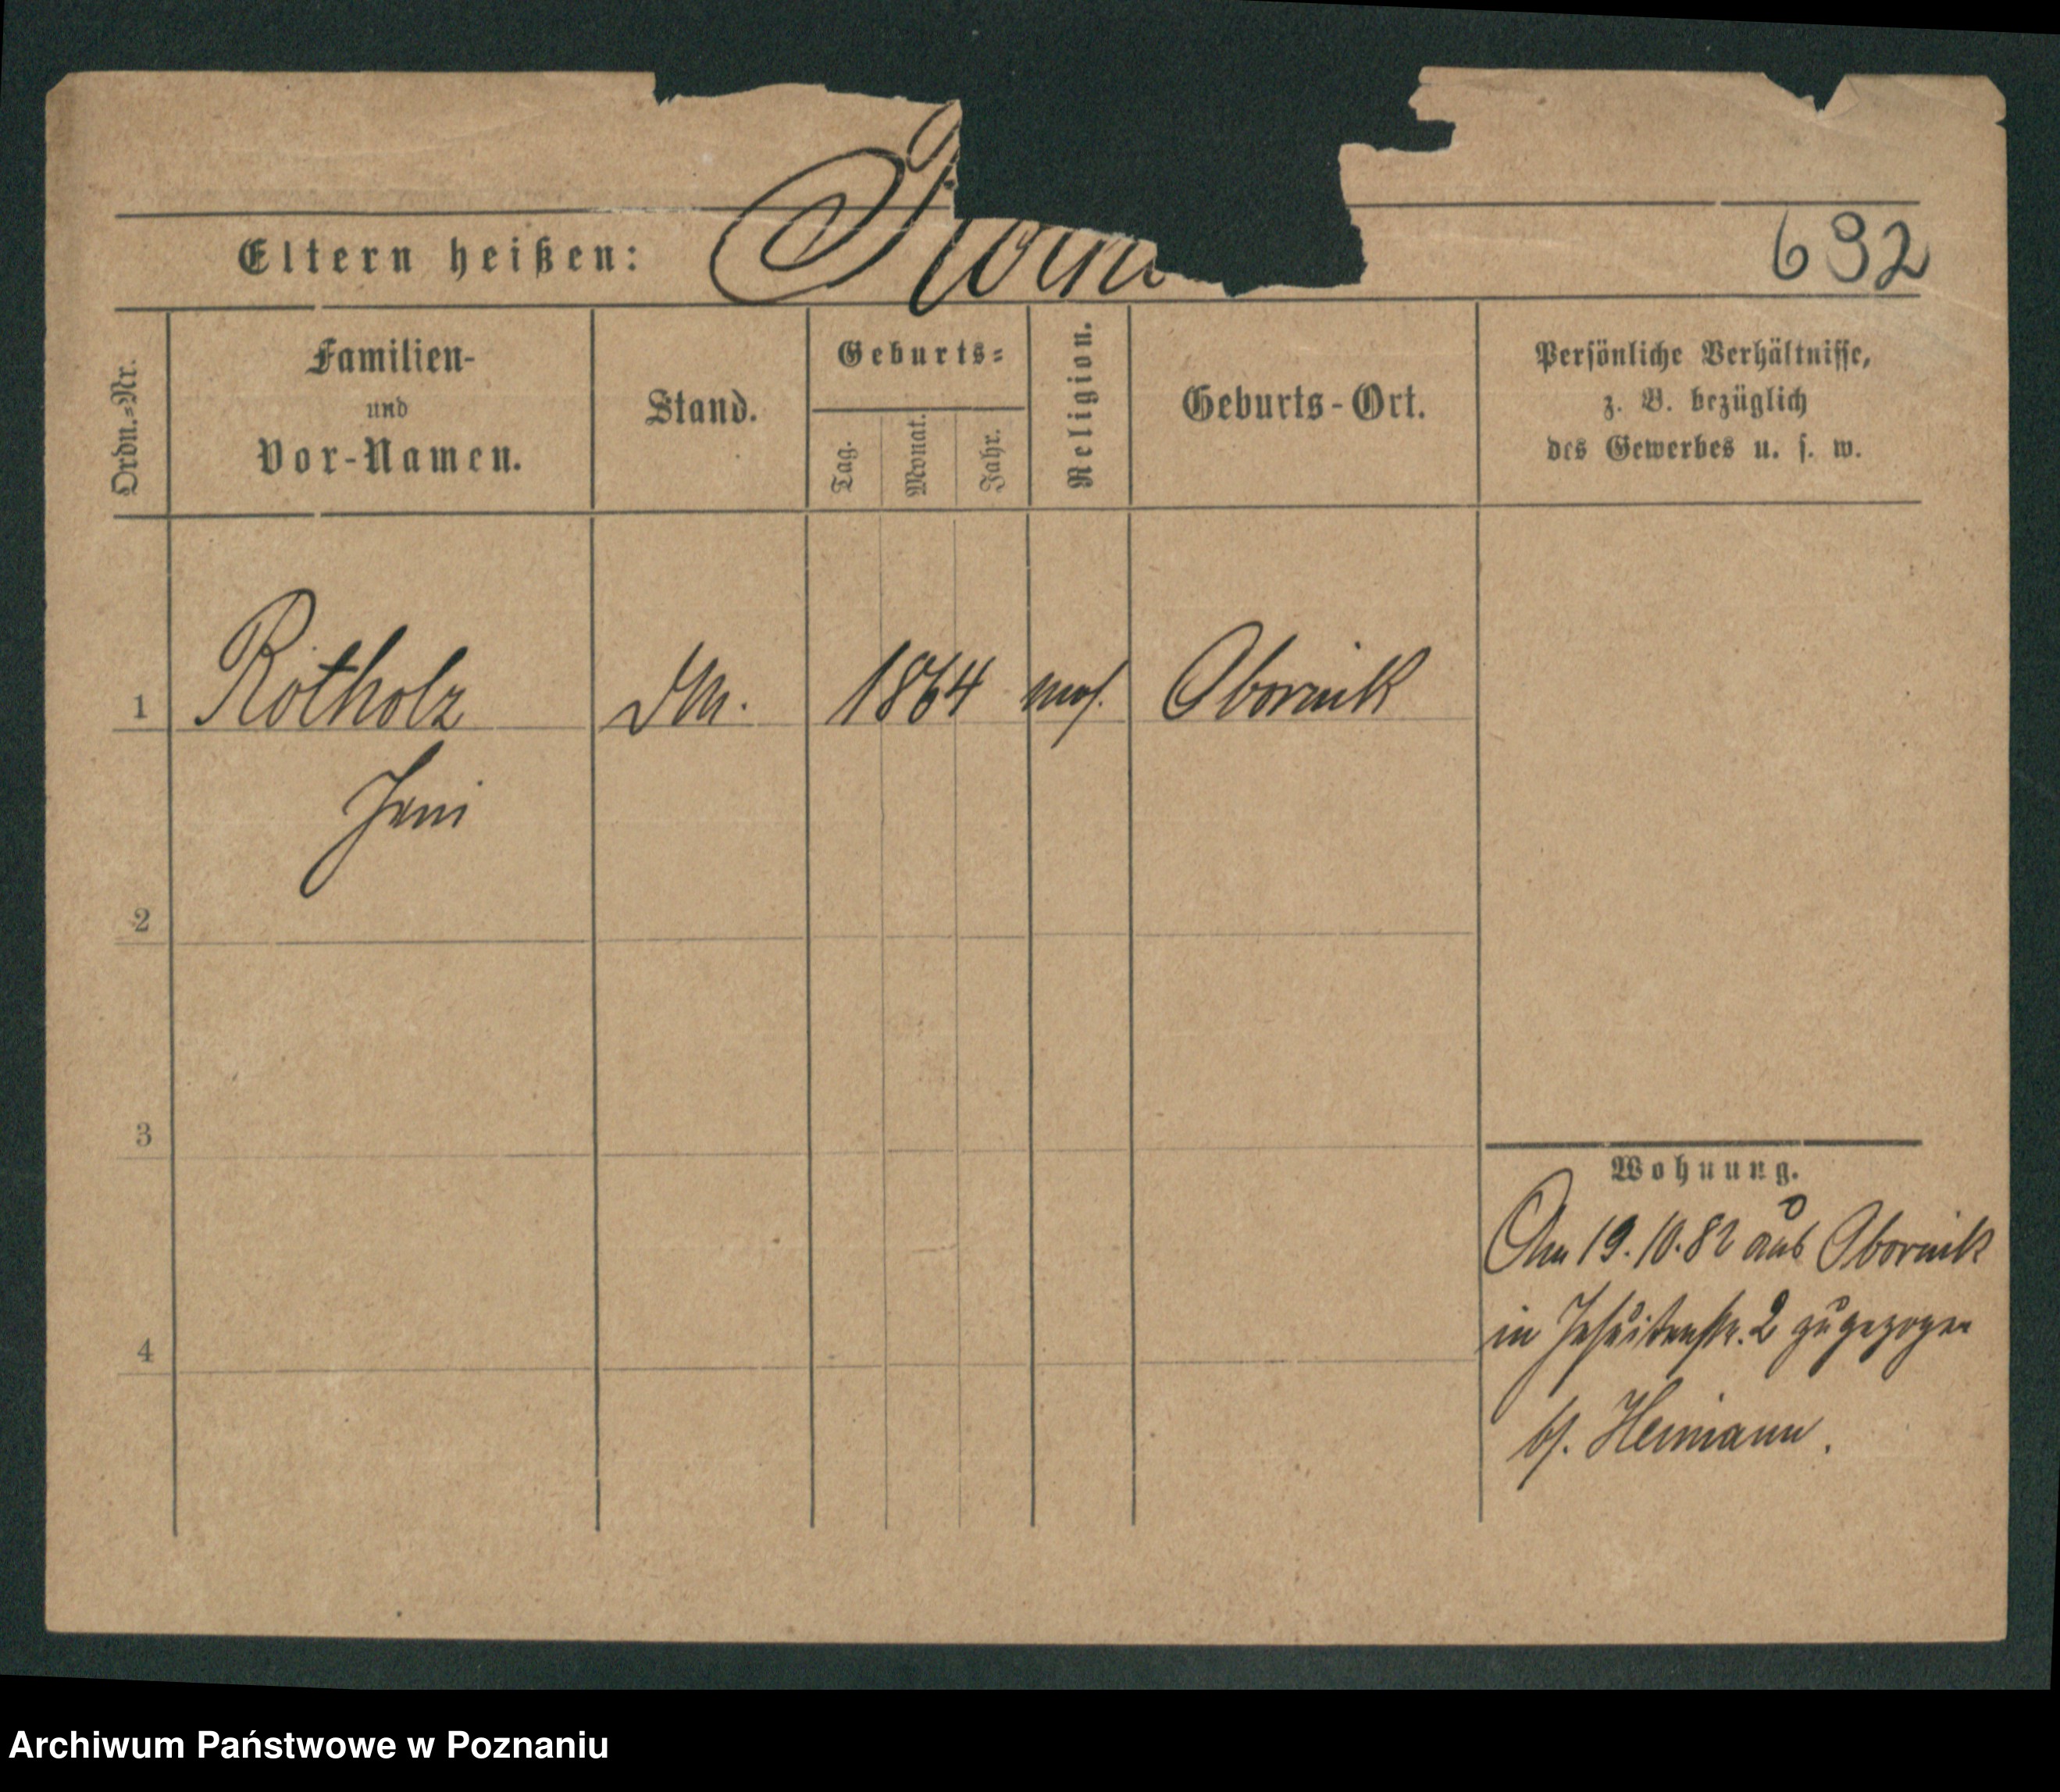 Eltern heißen:
632
Ordn.-Nr.
Familien-
und
Vor-Namen.
Stand.
Geburts-
Tag.
Monat.
Jahr.
Religion.
Geburts-Ort.
Persönliche Verhältnisse,
z. B. bezüglich
des Gewerbes u. s. w.
1 Rotholz 1864 mos. Obornik
Jeni
2
3
4
Wohnung.
Am 19.10.82 aus Obornik
in Jesuitenstr. 2 zugezogen
bf. Heimann.
Archiwum Państwowe w Poznaniu